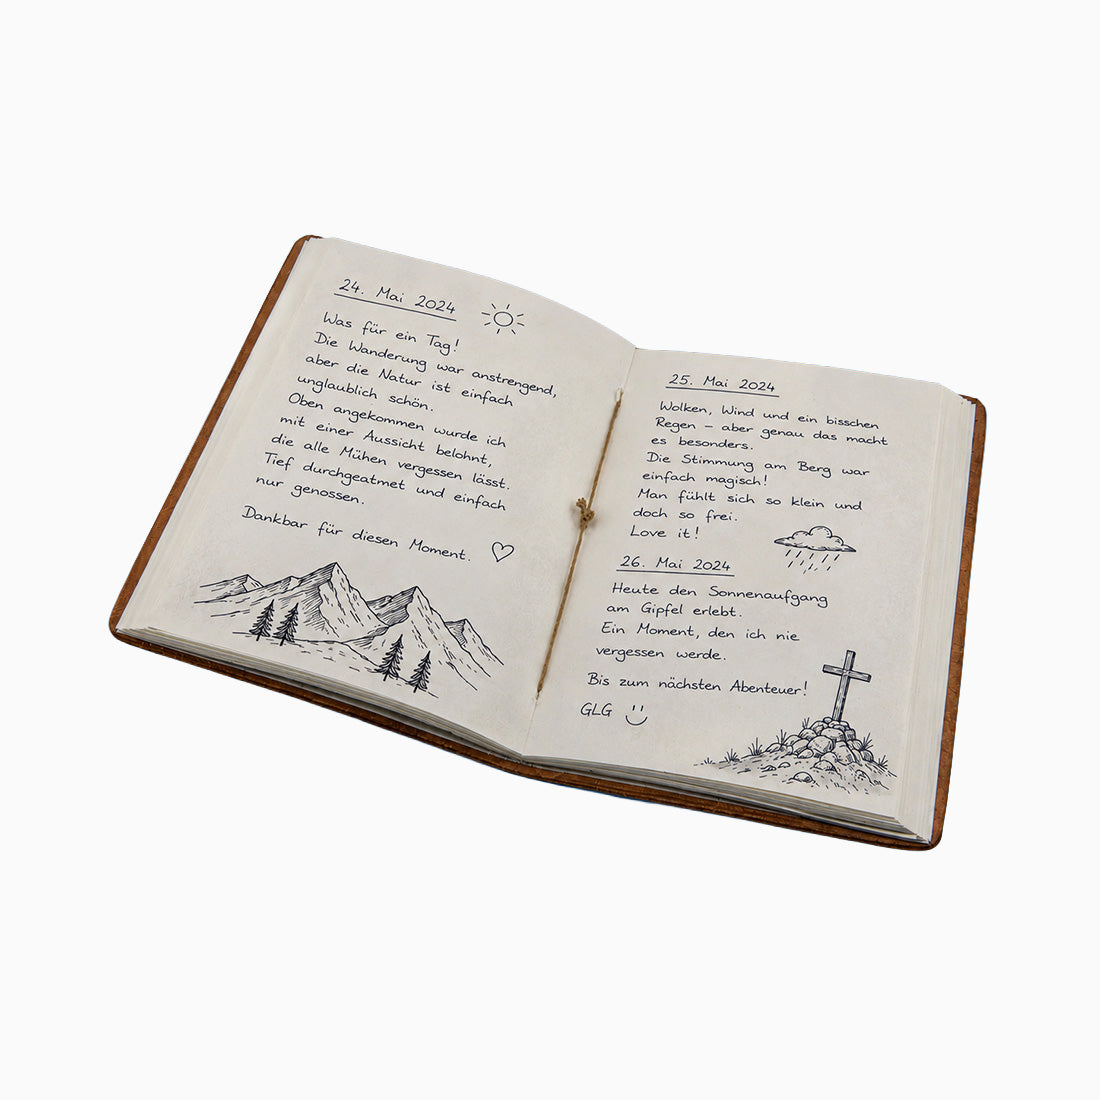 24. Mai 2024
Was für ein Tag!
Die Wanderung war anstrengend,
aber die Natur ist einfach
unglaublich schön.
Oben angekommen wurde ich
mit einer Aussicht belohnt,
die alle Mühen vergessen lässt.
Tief durchgeatmet und einfach
nur genossen.
Dankbar für diesen Moment.
25. Mai 2024
Wolken, Wind und ein bisschen
Regen – aber genau das macht
es besonders.
Die Stimmung am Berg war
einfach magisch!
Man fühlt sich so klein und
doch so frei.
Love it!
26. Mai 2024
Heute den Sonnenaufgang
am Gipfel erlebt.
Ein Moment, den ich nie
vergessen werde.
Bis zum nächsten Abenteuer!
GLG